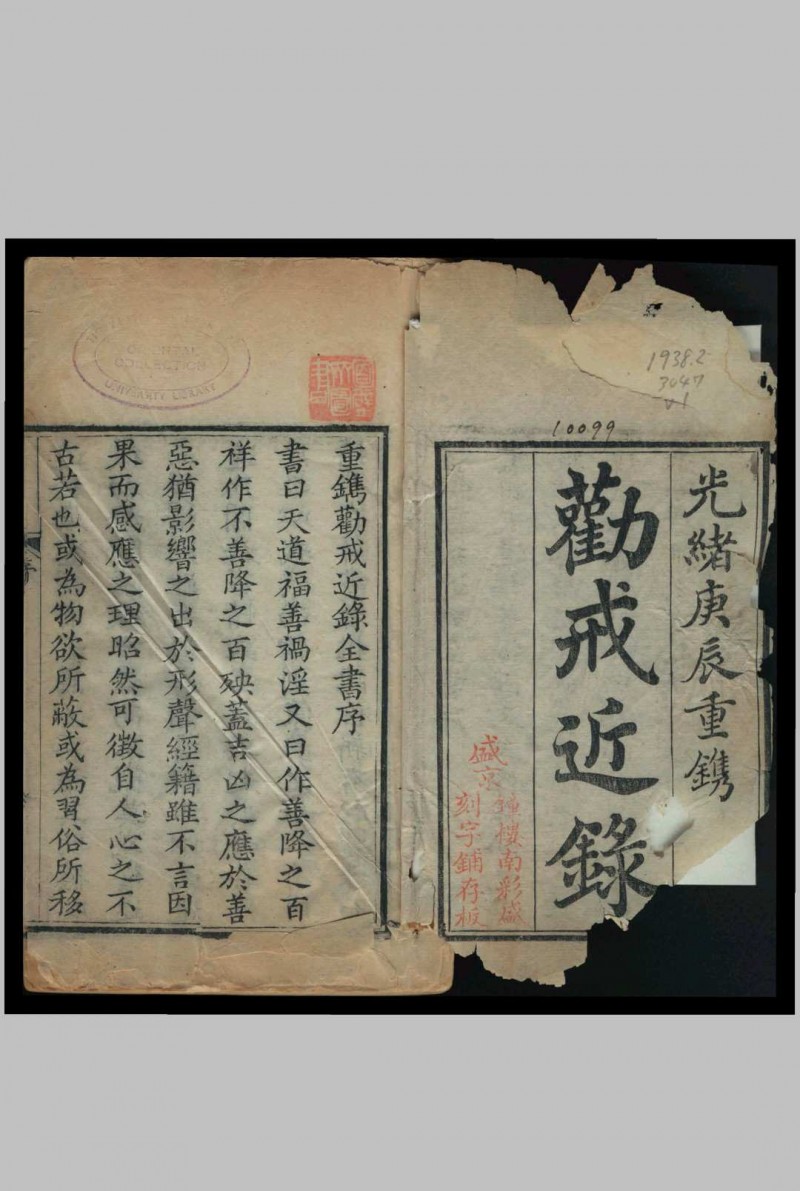 光緒庚辰重鐫
勸戒近錄
盛京鐘樓南彩盛
刻字鋪存板
1938.2
3047
v1
10099
重鐫勸戒近錄全書序
書曰天道福善禍淫又曰作善降之百
祥作不善降之百殃蓋吉凶之應於善
惡猶影響之出於形聲經籍雖不言因
果而感應之理昭然可徵自人心之不
古若也或為物欲所蔽或為習俗所移
序
ORIENTAL
COLLECTION
UNIVERSITY LIBRARY